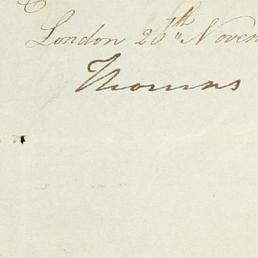 London 26th Novem
Thomas